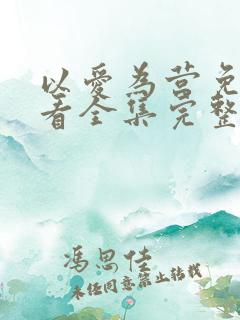 以爱为营免
看全集完整
冯思佳
未经同意禁止转载